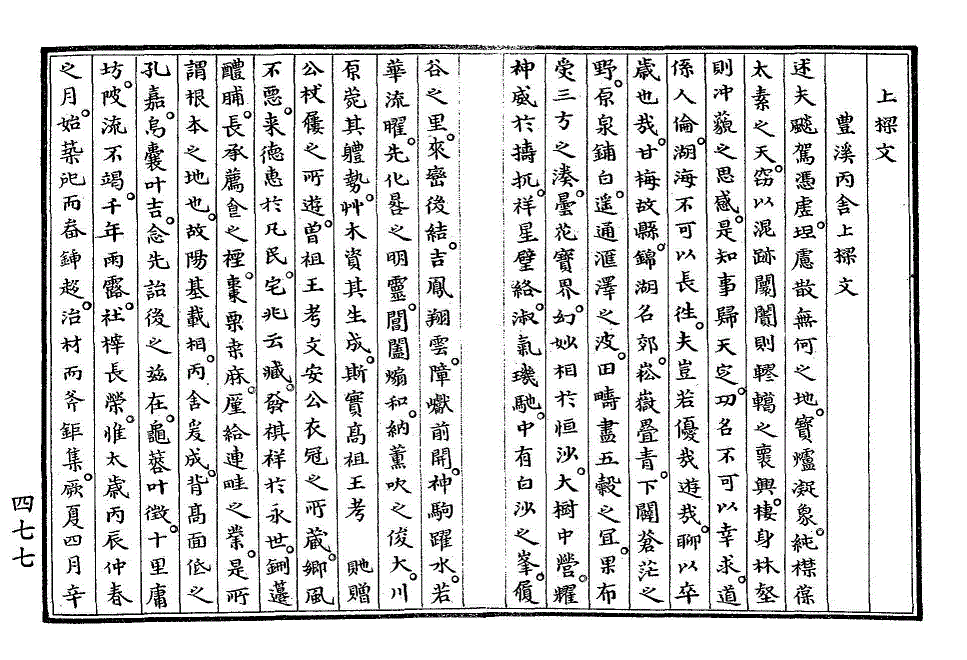 上樑文
豊溪丙舍上樑文
述夫飈駕憑虛。坦慮散無何之地。寶爐凝象。純襟葆
太素之天。窃以混跡闤闠則轇轕之襄興。棲身林壑
則冲藐之思感。是知事歸天定。功名不可以幸求。道
係人倫。湖海不可以長徃。夫豈若優哉遊哉。聊以卒
歲也哉。甘梅故縣。錦湖名郊。崧嶽疊青。下闢蒼茫之
野。原泉鋪白。遥通滙澤之波。田疇盡五糓之宜。果布
受三方之湊。曇花寶界。幻妙相於恒沙。大樹中營。耀
神威於擣抗。祥星壁絡。淑氣璣馳。中有白沙之峯。傾
谷之里。來巒後結。吉鳳翔雲。障巘前開。神駒躍水。若
華流曜。先化晷之明靈。閶闔煽和。納薰吹之俊大。川
原莞其軆勢。艸木資其生成。斯實高祖王考 貤贈
公杖屨之所遊。曾祖王考文安公衣冠之所藏。鄉風
不悪。来德惠於凡民。宅兆云臧。發祺祥於永世。鉶薘
醴脯。長承薦飠之禋。棗栗桒麻。厪給連畦之業。是所
謂根本之地也。故陽基載相。丙舍爰成。背高面低之
孔嘉。烏囊叶吉。念先詒後之玆在。龜蓍叶徵。十里庸
坊。陂流不竭。千年雨露。社梓長榮。惟太歲丙辰仲春
之月。始築圮而畚鍤趍。治材而斧鉅集。厥夏四月辛
四七七